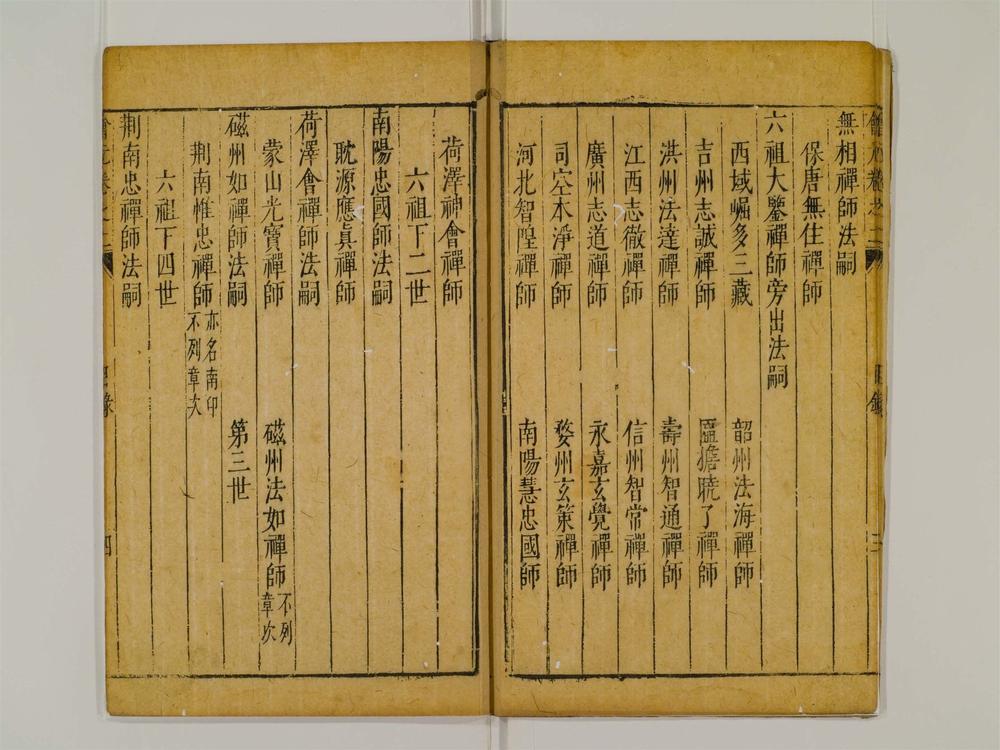 無相禪師法嗣
保唐無住禪師
六祖大鑒禪師旁出法嗣
西域崛多三藏 韶州法海禪師
吉州志誠禪師 匾擔曉了禪師
洪州法達禪師 壽州智通禪師
江西志徹禪師 信州智常禪師
廣州志道禪師 永嘉玄覺禪師
司空本淨禪師 婺州玄策禪師
河北智隍禪師 南陽慧忠國師
荷澤神會禪師
六祖下二世
南陽忠國師法嗣
耽源應眞禪師
荷澤會禪師法嗣
蒙山光寶禪師 磁州法如禪師 不列章次
磁州如禪師法嗣 第三世
荆南惟忠禪師 亦名南印不列章次
六祖下四世
荆南忠禪師法嗣